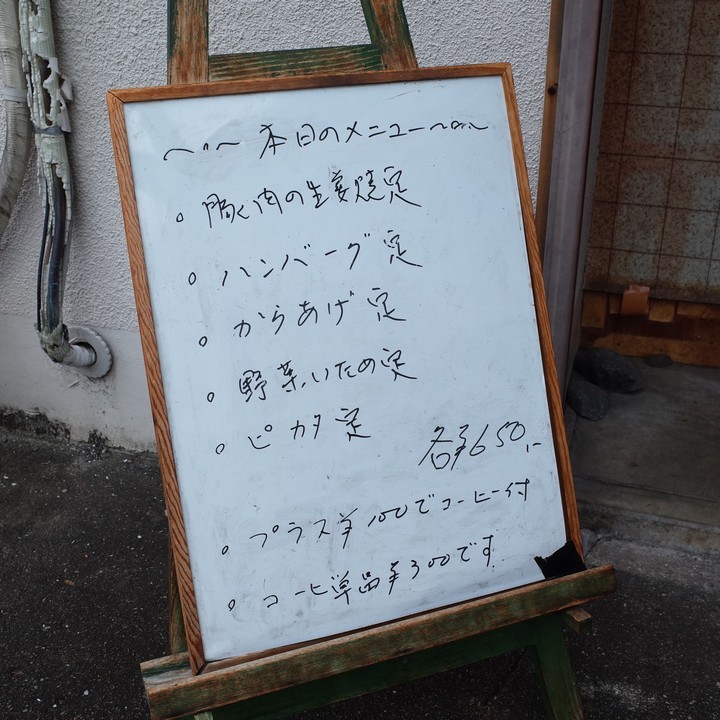 〜〃〜 本日のメニュー 〜〃〜
○ 豚肉の生姜焼定
○ ハンバーグ定
○ からあげ定
○ 野菜いため定
○ ピカタ定
各¥650,-
○ プラス¥100でコーヒー付
○ コーヒ単品¥300です